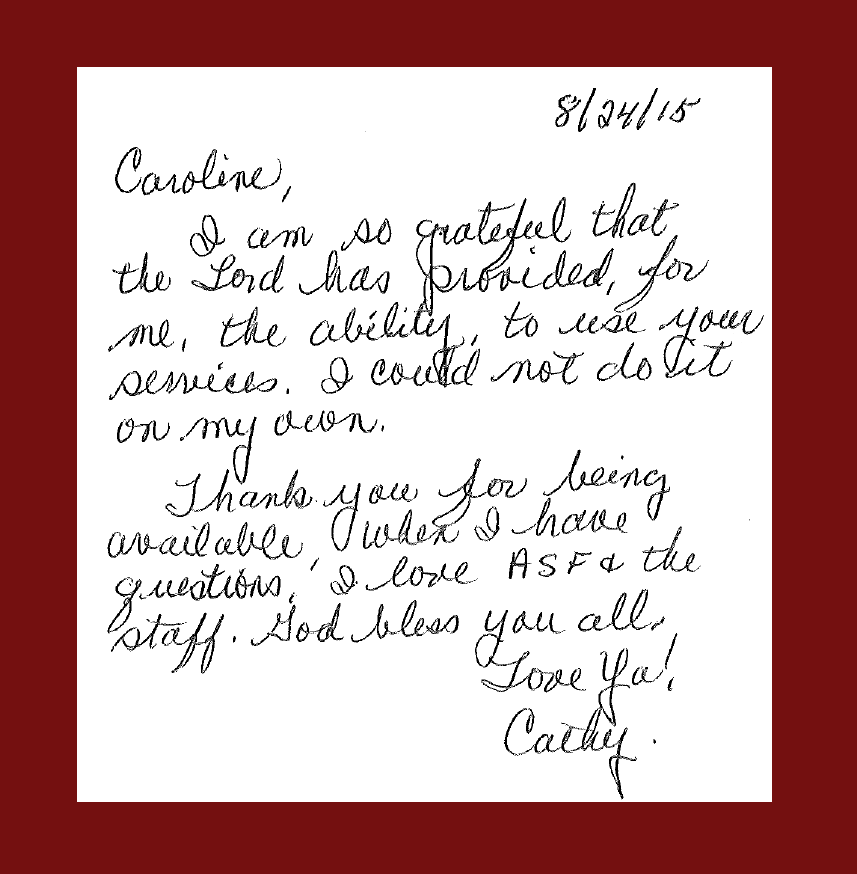 8/24/15
Caroline,
I am so grateful that
the Lord has provided, for
me, the ability, to use your
services. I could not do it
on my own.
Thank you for being
available, when I have
questions. I love ASF & the
staff. God bless you all.
Love Ya!
Cathy.